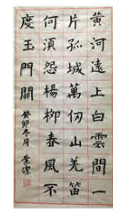 黄河遠上白雲間一
片孤城萬仞山羌笛
何須怨楊柳春風不
度玉門關
癸卯冬月